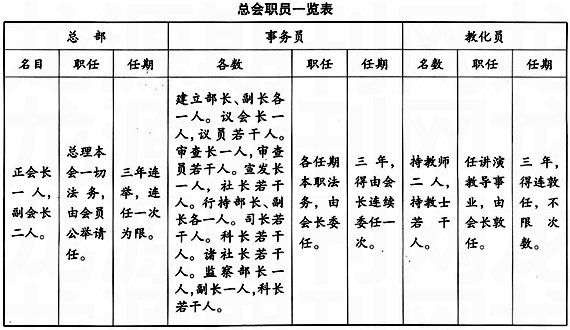 总会职员一览表
总 部
事务员
教化员
名目
职任
任期
各数
职任
任期
名数
职任
任期
正会长
一人，
副会长
二人。
总理本
会一切
法务，
由会员
公举请
任。
三年连
举，连
任一次
为限。
建立部长、副长各
一人。议会长一
人，议员若干人。
审查长一人，审查
员若干人。宣发长
一人，社长若干
人。行持部长、副
长各一人。司长若
干人。科长若干
人。诸社长若干
人。监察部长一
人，副长一人，科长
若干人。
各任期
本职法
务，由
会长委
任。
三年，
得由会
长连续
委任一
次。
持教师
二人，
持教士
若干
人。
任讲演
教导事
业，由
会长敦
任。
三年，
得连敦
任，不
限次
数。